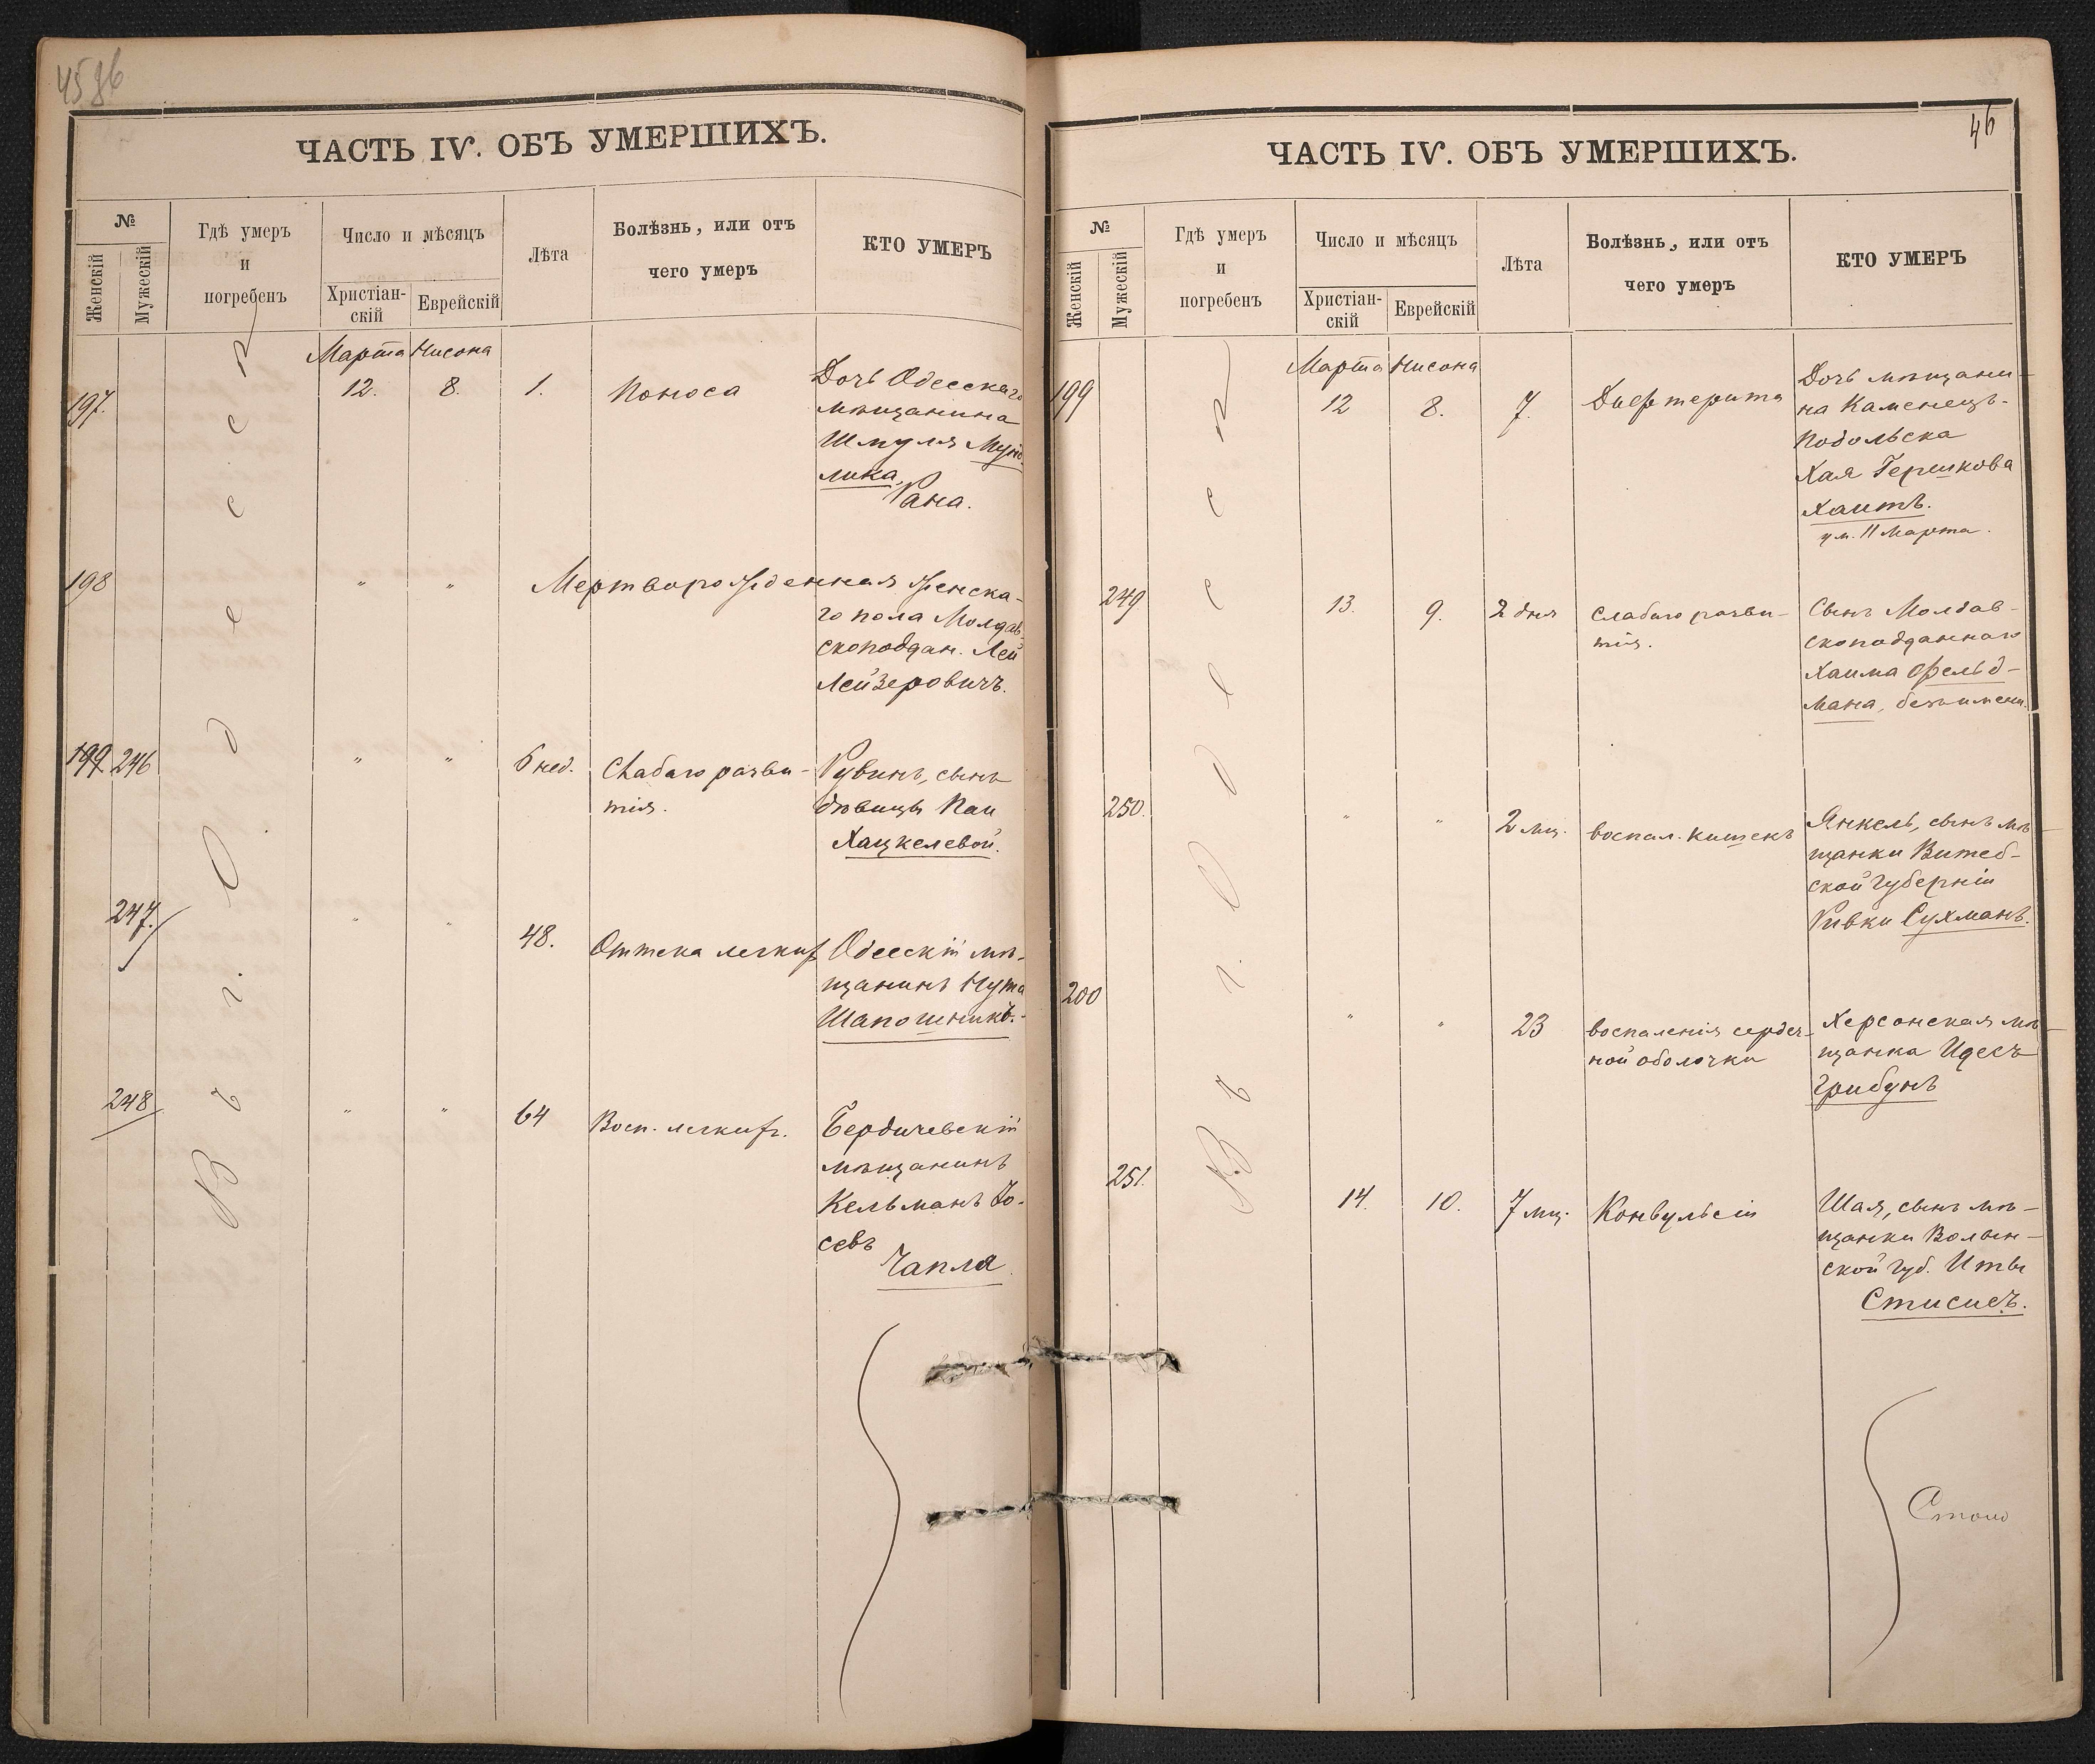 45 96
ЧАСТЬ IV. ОБЪ УМЕРШИХЪ.
№
Женскій
Мужескій
Гдѣ умеръ
и
погребенъ
Число и мѣсяцъ
Христіан-
скій
Еврейскій
Лѣта
Болѣзнь, или отъ
чего умеръ
КТО УМЕРЪ
Въ г. Одессѣ
Марта Нисона
197. 12. 8. 1. Поноса Дочь Одесскаго
мѣщанина
Шмуля Мунд-
лика,
Рана.
198 " " Мертворожденная женска-
го пола Молдав-
скоподдан. Леи
Лейзеровичъ.
199 246 " " 6 нед. Слабаго разви- Рувинъ, сынъ
тія. дѣвицы Паи
Хацкелевой.
247. " " 48. Оттека легкихъ Одесскій мѣ-
щанинъ Нута
Шапошникъ.
248 " " 64 Восп. легкихъ. Бердичевскій
мѣщанинъ
Кельманъ Іо-
севъ
Чапля
46
ЧАСТЬ IV. ОБЪ УМЕРШИХЪ.
№
Женскій
Мужескій
Гдѣ умеръ
и
погребенъ
Число и мѣсяцъ
Христіан-
скій
Еврейскій
Лѣта
Болѣзнь, или отъ
чего умеръ
КТО УМЕРЪ
Въ г. Одессѣ
Марта Нисона
199 12 8. 7. Дифтерита Дочь мѣщани-
на Каменецъ-
Подольска
Хая Гершкова
Хаитъ.
ум. 11 Марта.
249 13. 9. 2 дня Слабаго разви- Сынъ Молдав-
тія. скоподданнаго
Хаима Фельд-
мана, безъимени.
250. " " 2 мц. воспал. кишекъ Янкель, сынъ мѣ-
щанки Витеб-
ской губерніи
Ривки Сухманъ.
200 " " 23 воспаленія сердеч- Херсонская мѣ-
ной оболочки щанка Идесъ
Грибунъ
251. 14. 10. 7 мц. Конвульсіи Шая, сынъ мѣ-
щанки Волын-
ской губ. Иты
Стисисъ.